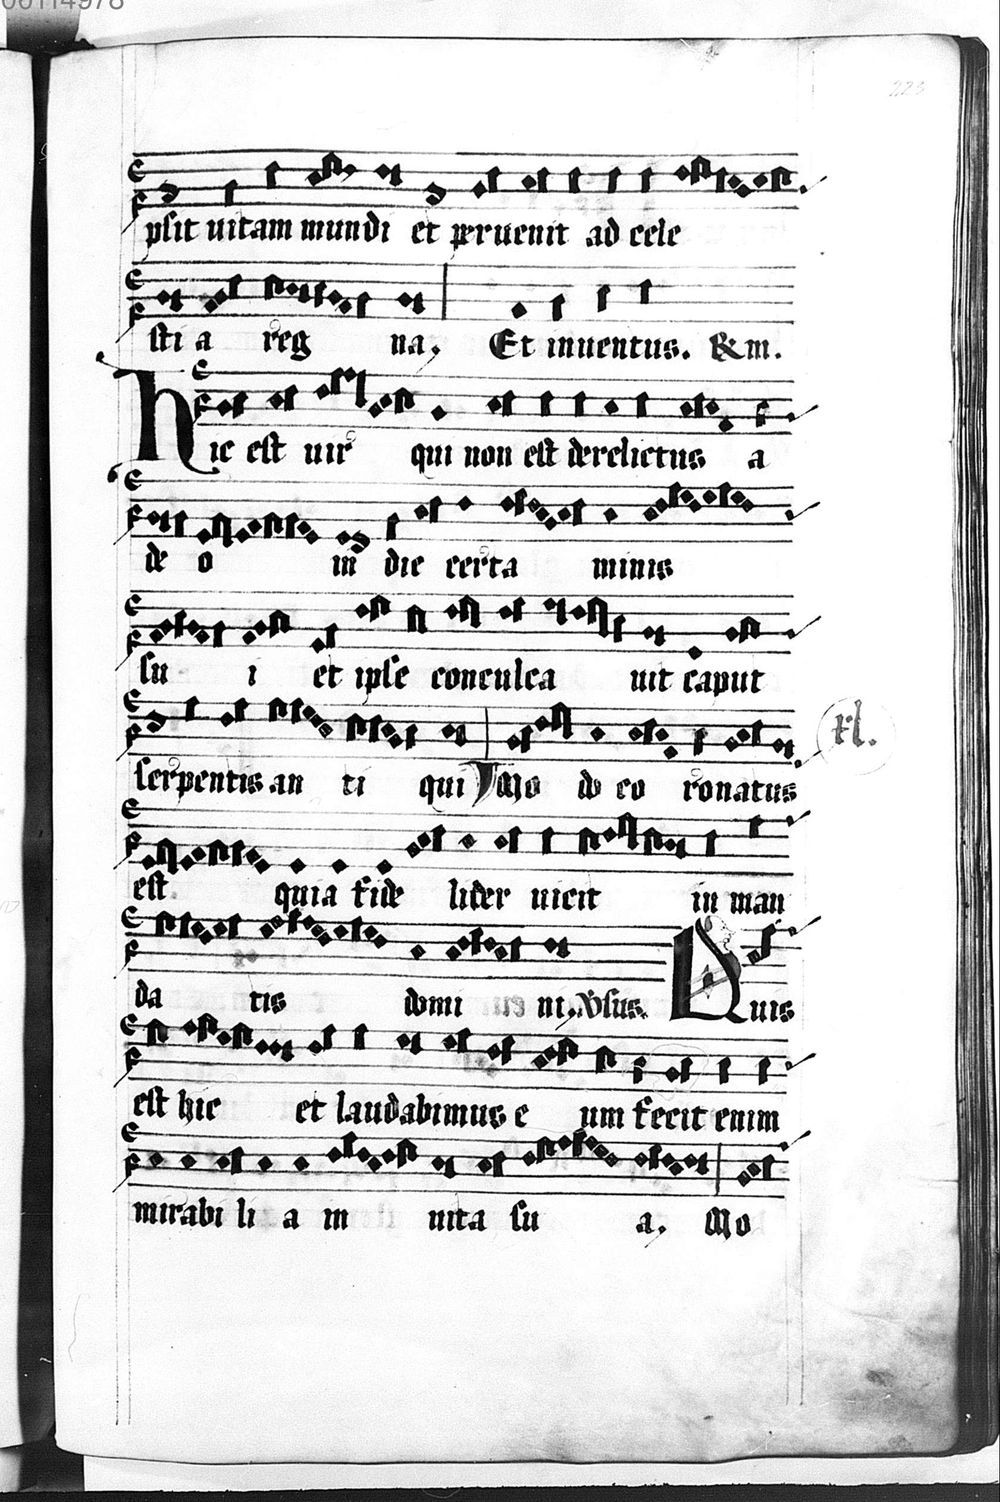 00114978
223
psit uitam mundi et peruenit ad cele
sti a reg na. Et inuentus. &m.
Hic est uir qui non est derelictus a
de o in die certa minis
su i et ipse conculca uit caput
serpentis an ti qui Mo do co ronatus
rl.
est quia fide liter uicit in man
da tis domi ni. Vsus. Quis
est hic et laudabimus e um fecit enim
mirabi li a in uita su a. Mo